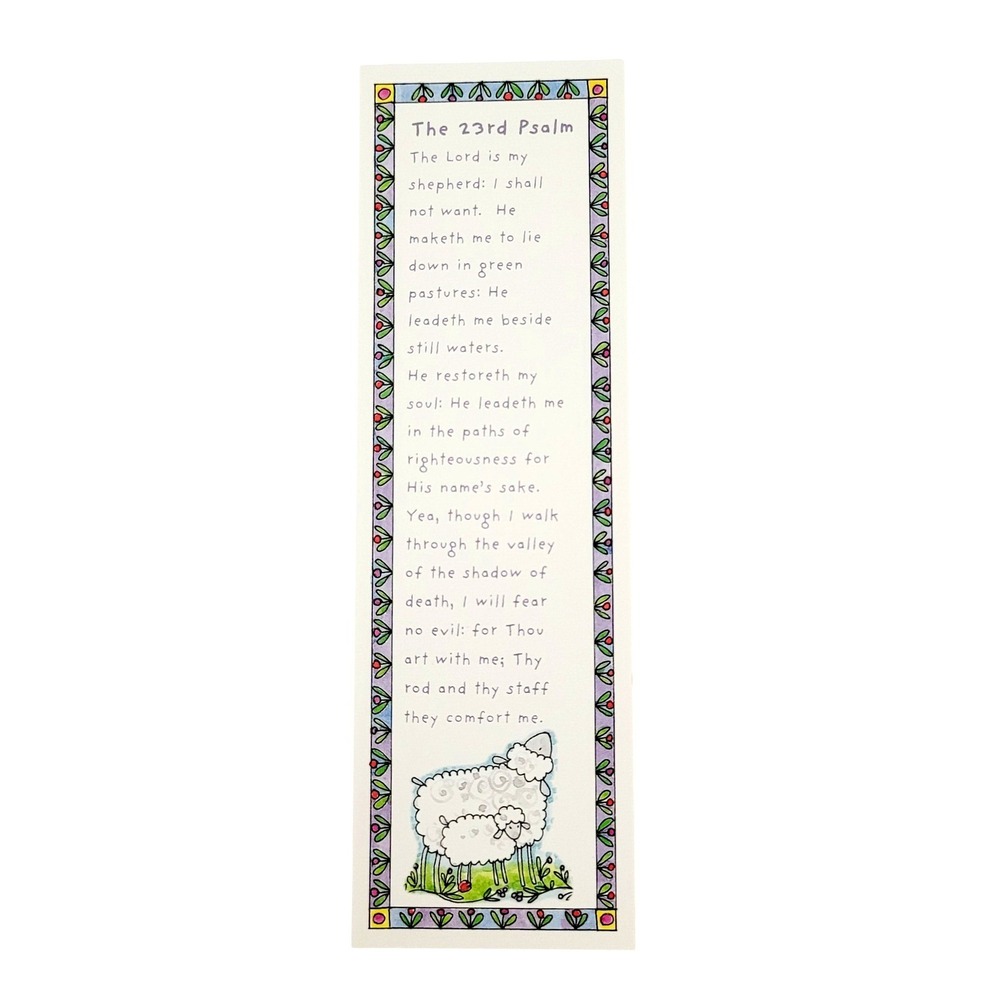 The 23rd Psalm
The Lord is my
shepherd: I shall
not want. He
maketh me to lie
down in green
pastures: He
leadeth me beside
still waters.
He restoreth my
soul: He leadeth me
in the paths of
righteousness for
His name's sake.
Yea, though I walk
through the valley
of the shadow of
death, I will fear
no evil: for Thou
art with me; Thy
rod and thy staff
they comfort me.